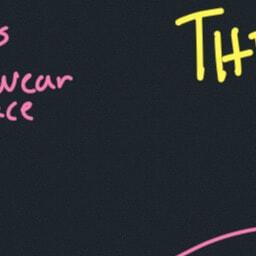 s
wear
ce
TH